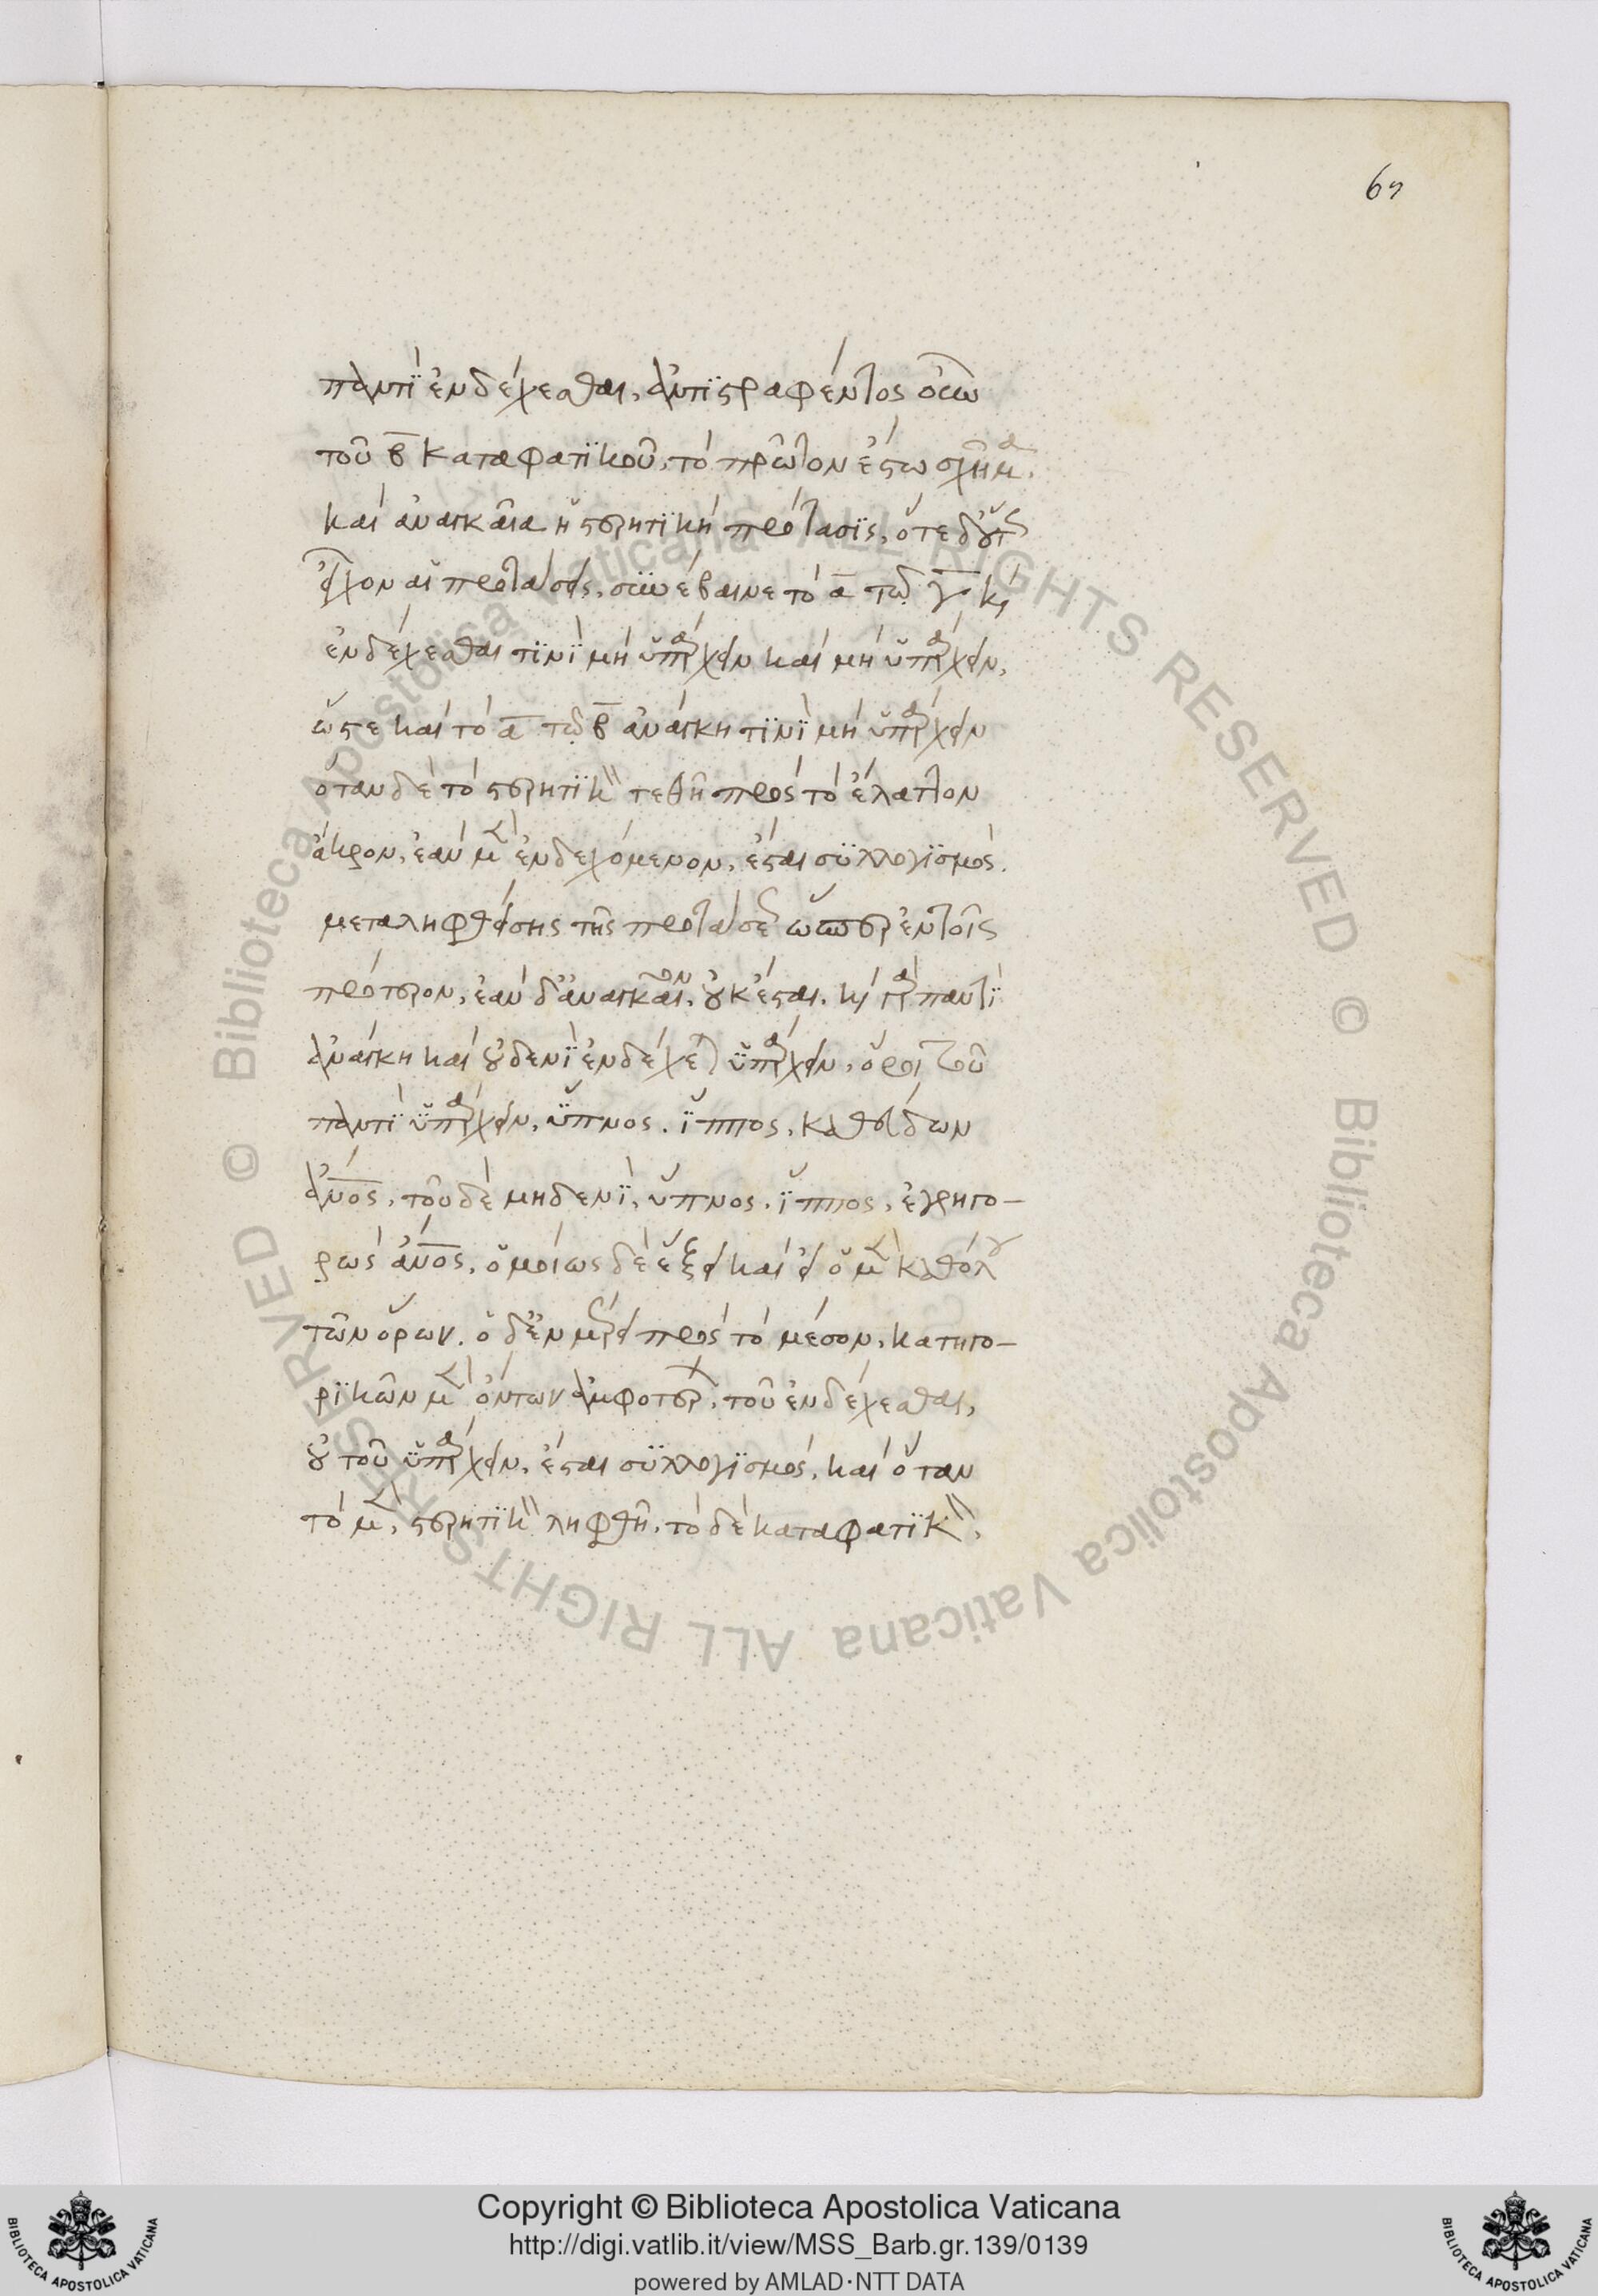 69
παντὶ ἐνδέχεσθαι, ἀντιστραφέντος οὖν
τοῦ β̅ καταφατικοῦ, τὸ πρῶτον ἔσται σχῆμα.
καὶ ἀναγκαία ἡ στερητικὴ πρότασις, ὅτε δ' οὕτως
εἶχον αἱ προτάσεις, συνέβαινε τὸ α̅ τῷ γ̅ καὶ
ἐνδέχεσθαι τινὶ μὴ ὑπάρχειν καὶ μὴ ὑπάρχειν,
ὥστε καὶ τὸ α̅ τῷ β̅ ἀνάγκη τινὶ μὴ ὑπάρχειν
ὅταν δὲ τὸ στερητικὸν τεθῆ πρὸς τὸ ἔλαττον
ἄκρον, ἐὰν μὲν ἐνδεχόμενον, ἔσται συλλογισμὸς.
μεταληφθείσης τῆς προτάσεως ὥσπερ ἐν τοῖς
πρότερον, ἐὰν δ' ἀναγκαῖον, οὐκ ἔσται. καὶ γὰρ παντὶ
ἀνάγκη καὶ οὐδενὶ ἐνδέχεται ὑπάρχειν, ὅροι τοῦ
παντὶ ὑπάρχειν, ὕπνος. ἵππος. καθεύδων
ἄνος, τοῦ δὲ μηδενὶ, ὕπνος. ἵππος, ἐγρηγο-
ρὼς ἄνος, ὁμοίως δὲ ἕξει καὶ εἰ ὁ μὲν καθόλου
τῶν ὅρων. ὁ δ' ἐν μέρει πρὸς τὸ μέσον, κατηγο-
ρικῶν μὲν ὄντων ἀμφοτέρων, τοῦ ἐνδέχεσθαι,
οὐ τοῦ ὑπάρχειν, ἔσται συλλογισμὸς, καὶ ὅταν
τὸ μὲν, στερητικὸν ληφθῆ, τὸ δὲ καταφατικὸν,
Copyright © Biblioteca Apostolica Vaticana
http://digi.vatlib.it/view/MSS_Barb.gr.139/0139
powered by AMLAD·NTT DATA
BIBLIOTECA APOSTOLICA VATICANA
BIBLIOTECA APOSTOLICA VATICANA
© Biblioteca Apostolica Vaticana ALL RIGHTS RESERVED
© Biblioteca Apostolica Vaticana ALL RIGHTS RESERVED